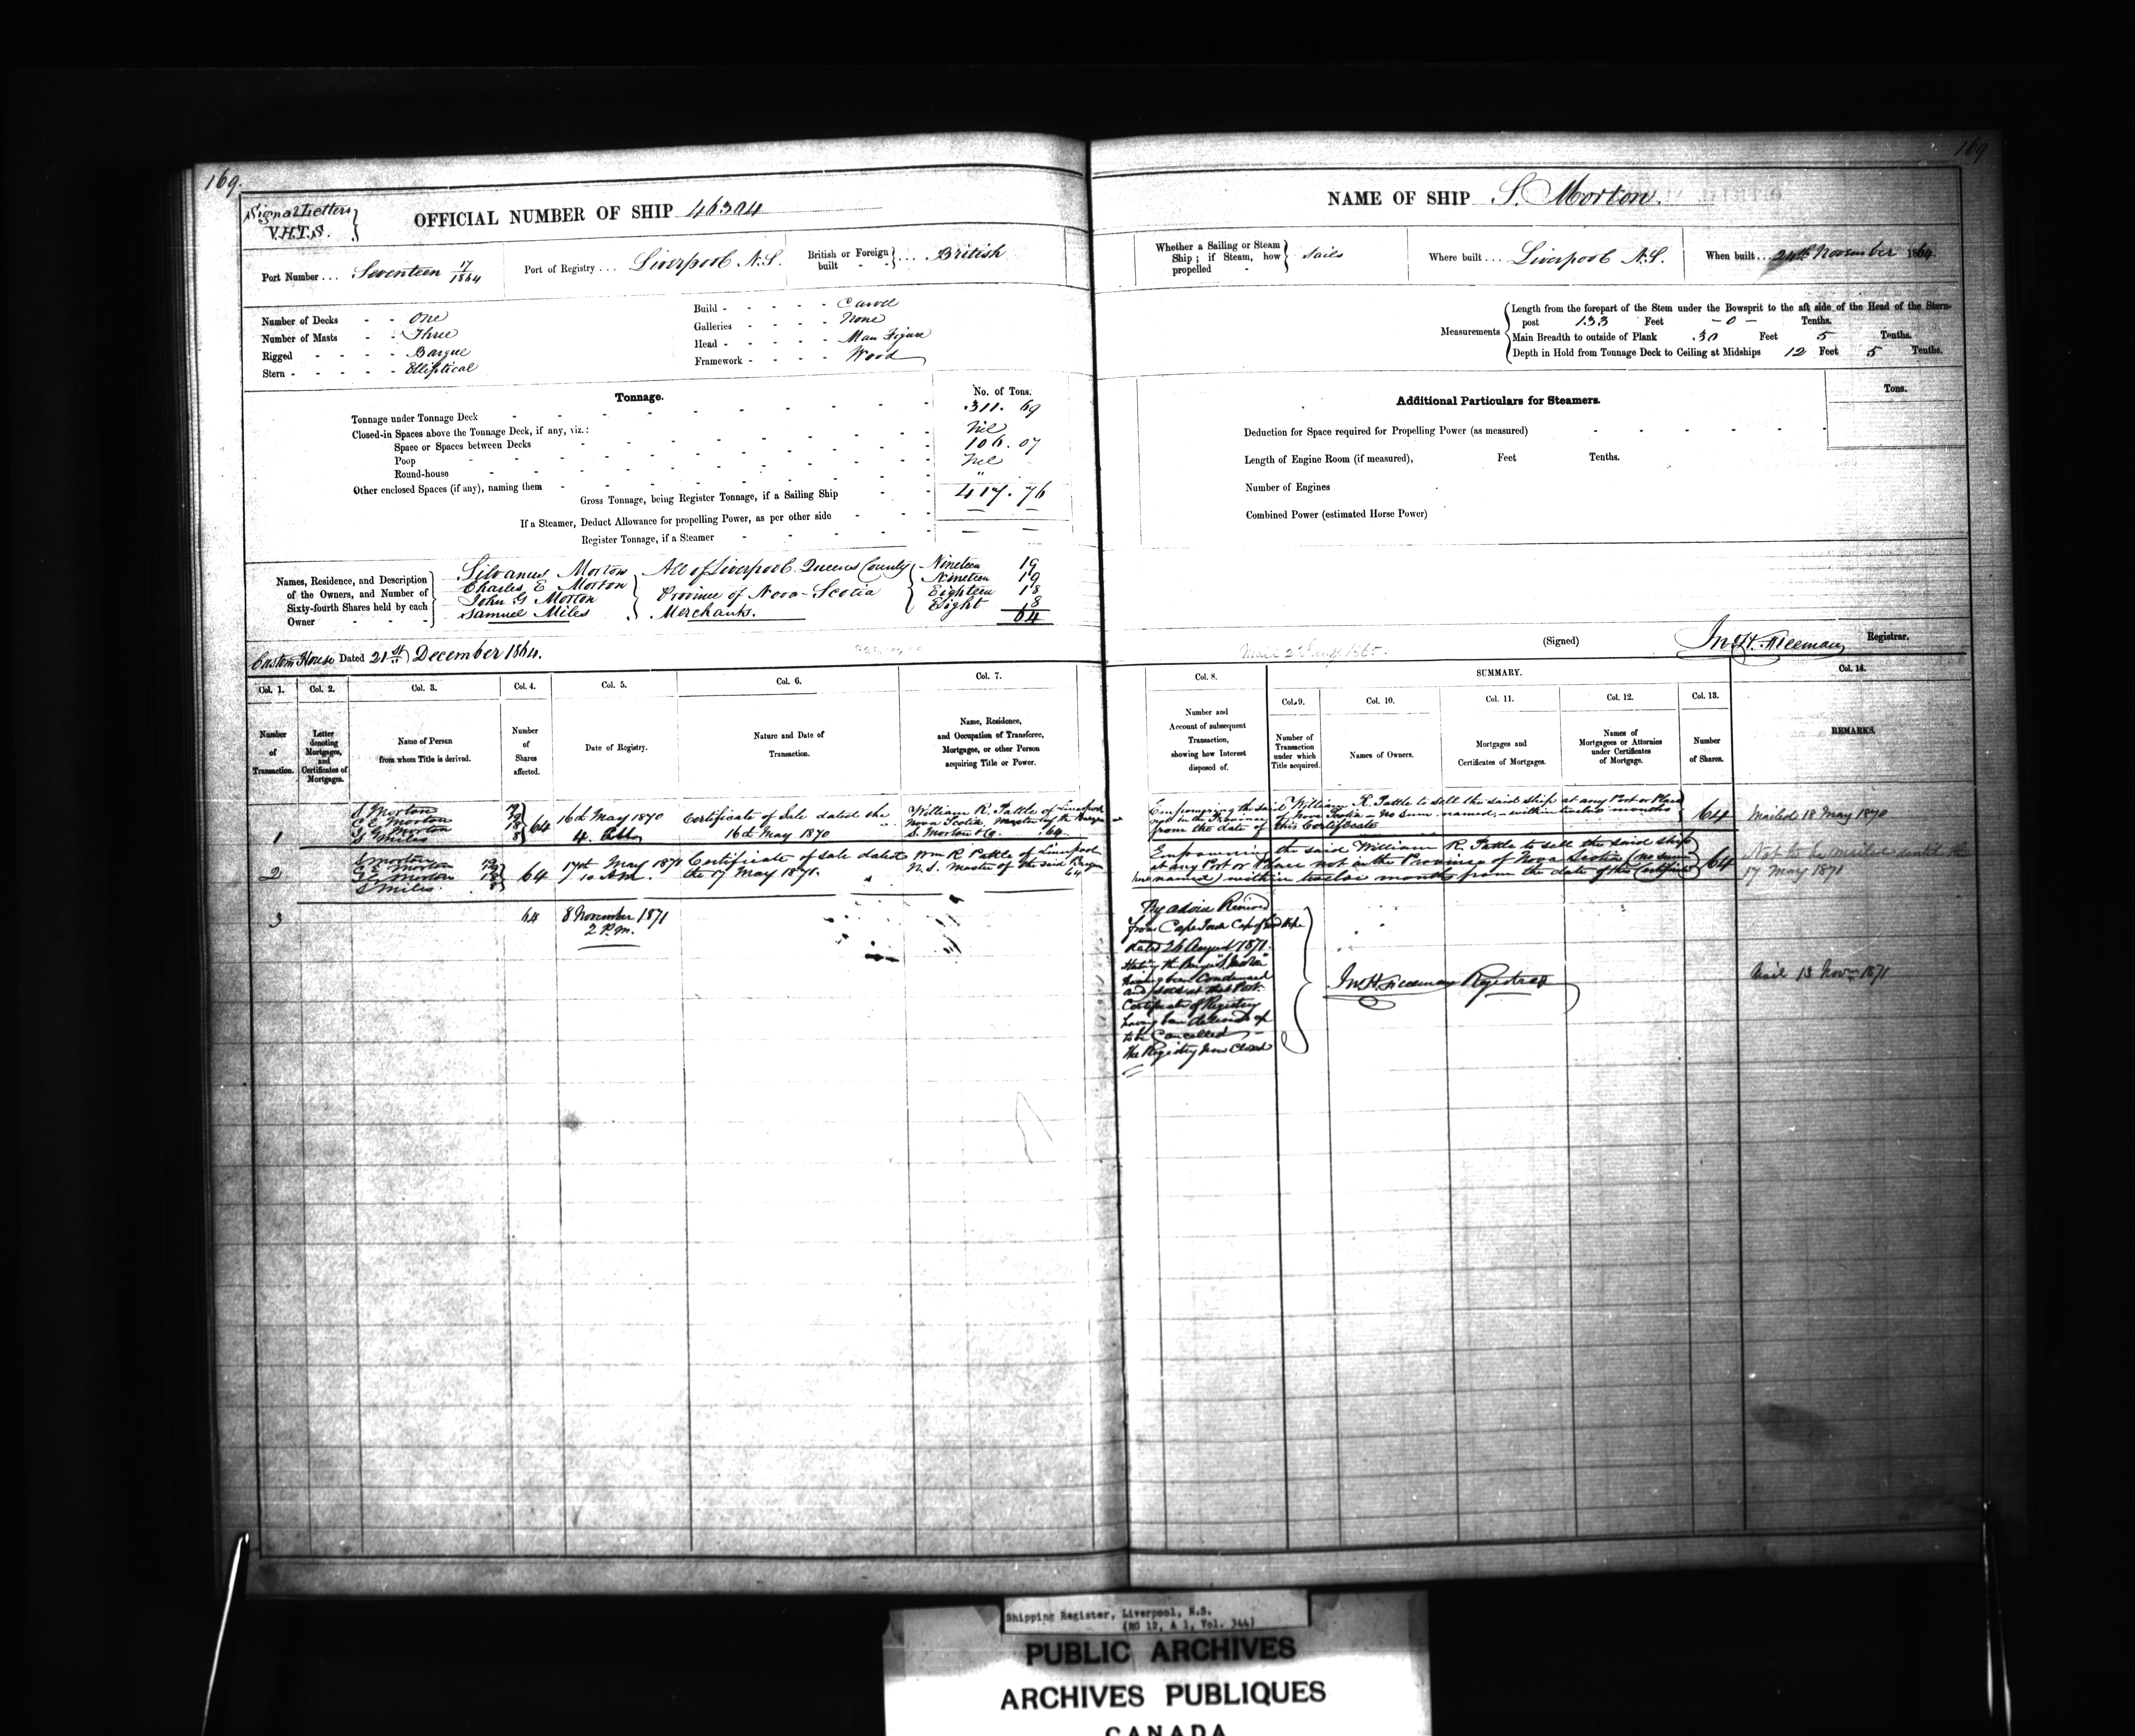 169.
169
Signal Letters
V.H.T.S.
OFFICIAL NUMBER OF SHIP 46304
NAME OF SHIP S. Morton.
Port Number ... Seventeen 17/1864
Port of Registry ... Liverpool N.S.
British or Foreign built - - ... British
Whether a Sailing or Steam Ship; if Steam, how propelled - Sails
Where built ... Liverpool N.S.
When built ... 24th November 1864.
Number of Decks - - One
Number of Masts - - Three
Rigged - - - - Barque
Stern - - - - - Elliptical
Build - - - - - Carvel
Galleries - - - - None
Head - - - - - Man Figure
Framework - - - - Wood
Measurements
Length from the forepart of the Stem under the Bowsprit to the aft side of the Head of the Stern-
post 133 Feet - 0 - Tenths.
Main Breadth to outside of Plank 30 Feet 5 Tenths.
Depth in Hold from Tonnage Deck to Ceiling at Midships 12 Feet 5 Tenths.
Tonnage.
No. of Tons.
Tonnage under Tonnage Deck 311. 69
Closed-in Spaces above the Tonnage Deck, if any, viz.:
Space or Spaces between Decks Nil
Poop 106. 07
Round-house Nil
Other enclosed Spaces (if any), naming them "
Gross Tonnage, being Register Tonnage, if a Sailing Ship 417. 76
If a Steamer, Deduct Allowance for propelling Power, as per other side
Register Tonnage, if a Steamer
Additional Particulars for Steamers.
Tons.
Deduction for Space required for Propelling Power (as measured)
Length of Engine Room (if measured), Feet Tenths.
Number of Engines
Combined Power (estimated Horse Power)
Names, Residence, and Description of the Owners, and Number of Sixty-fourth Shares held by each Owner
Silvanus Morton All of Liverpool Queens County Nineteen 19
Charles E Morton Nineteen 19
John G Morton Province of Nova-Scotia Eighteen 18
Samuel Miles Merchants. Eight 8
64
Custom House Dated 21st December 1864.
(Signed) Jno H. Freeman Registrar.
SUMMARY.
Col. 1. Col. 2. Col. 3. Col. 4. Col. 5. Col. 6. Col. 7. Col. 8. Col. 9. Col. 10. Col. 11. Col. 12. Col. 13. Col. 14.
Number of Transaction.
Letter denoting Mortgages, and Certificates of Mortgages.
Name of Person from whom Title is derived.
Number of Shares affected.
Date of Registry.
Nature and Date of Transaction.
Name, Residence, and Occupation of Transferee, Mortgagee, or other Person acquiring Title or Power.
Number and Account of subsequent Transaction, showing how Interest disposed of.
Number of Transaction under which Title acquired.
Names of Owners.
Mortgages and Certificates of Mortgages.
Names of Mortgagees or Attornies under Certificates of Mortgage.
Number of Shares.
REMARKS.
1
S Morton 19
C E Morton 19
J G Morton 18
S Miles 8
64
16th May 1870
Certificate of Sale dated the
16th May 1870
William R. Pattle of Liverpool
Nova Scotia, Master of the Barque
S. Morton 64
Empowering the said William R. Pattle to sell the said ship at any Port or Place
not in the Province of Nova Scotia - no sum named, - within twelve months
from the date of this Certificate
64
Mailed 18 May 1870
2
S Morton 19
C E Morton 19
J G Morton 18
S Miles 8
64
17th May 1871
10 A.M.
Certificate of sale dated
the 17 May 1871.
Wm R Pattle of Liverpool
N.S. Master of the said Barque
64
Empowering the said William R. Pattle to sell the said ship
at any Port or Place not in the Province of Nova Scotia (no sum
named) within twelve months from the date of this Certificate
64
Not to be mailed until the
17 May 1871
3
64
8 November 1871
2 P.m.
By advice Received
from Cape Town Cape of Good Hope
dated 26 August 1871.
Stating the Barque "S. Morton"
having been Condemned
and sold at that Port.
Certificate of Registry
having been
to be Cancelled
the Registry now Closed
Jno H. Freeman Registrar
Mail 13 Novr 1871
Shipping Register, Liverpool, N.S.
(RG 12, A 1, Vol. 344)
PUBLIC ARCHIVES
ARCHIVES PUBLIQUES
CANADA